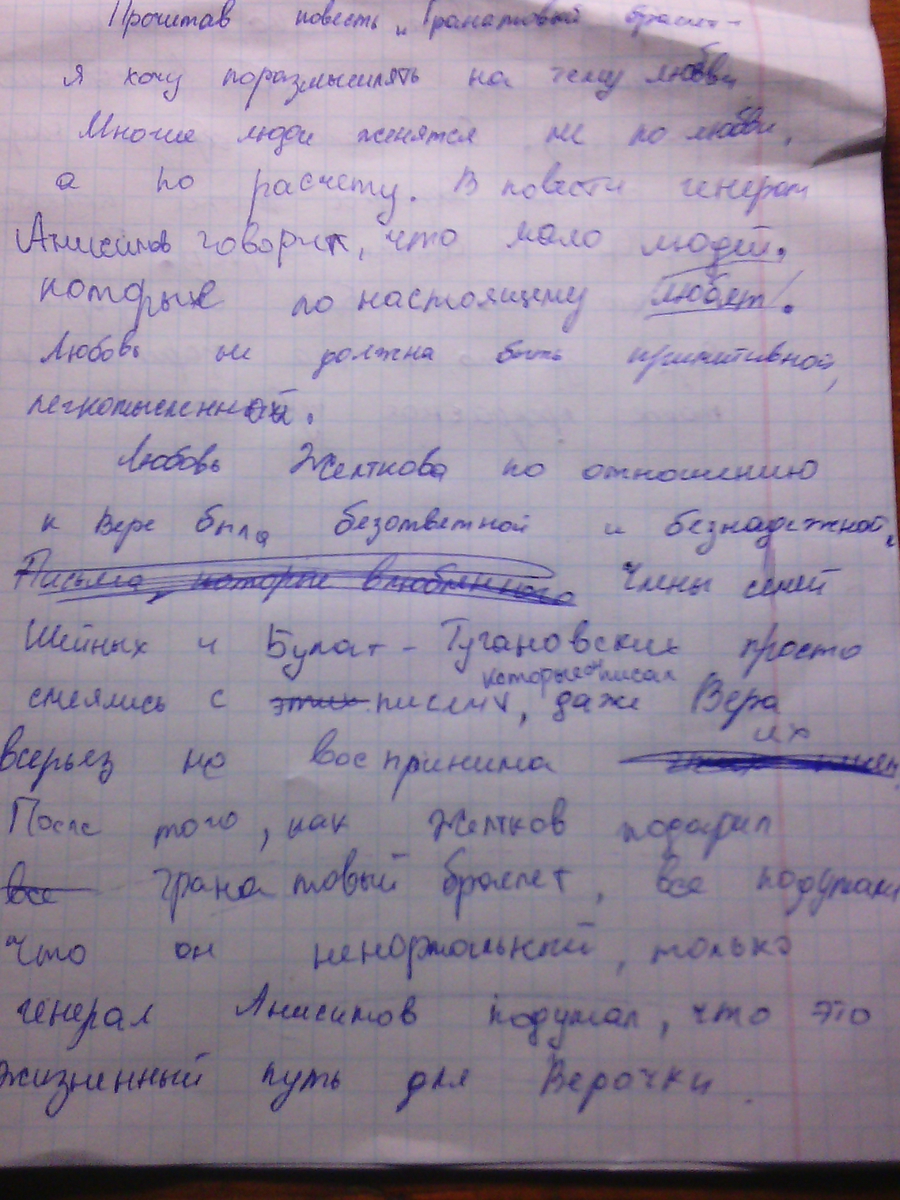 Прочитав повесть „Гранатовый браслет-
я хочу поразмышлять на тему любви
Многие люди женятся не по любви,
а по расчету. В повести генерал
Анисимов говорит, что мало людей,
которые по настоящему любят.
Любовь не должна быть примитивной,
легкомысленной.
Любовь Желткова по отношению
к Вере была безответной и безнадежной,
Письма, которые влюбленного Члены семей
Шейных и Булат-Тугановских просто
которые он писал
смеялись с этих писем, даже Вера
их
всерьез не воспринима
После того, как Желтков подарил
все гранатовый браслет, все подумали
что он ненормальный, только
генерал Анисимов подумал, что это
жизненный путь для Верочки.